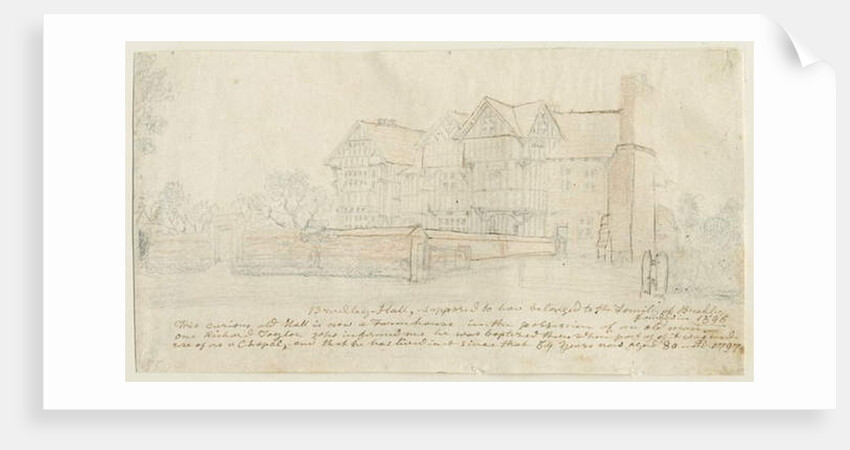 Bradley-Hall, supposed to have belonged to the Family of
founded in 1595
This curious old Hall is now a Farmhouse in the possession of an old man
one Richard Taylor who informed me he was baptized there when part of it was made
use of as a Chapel, and that he has lived in it since that 54 Years now aged 80 1797